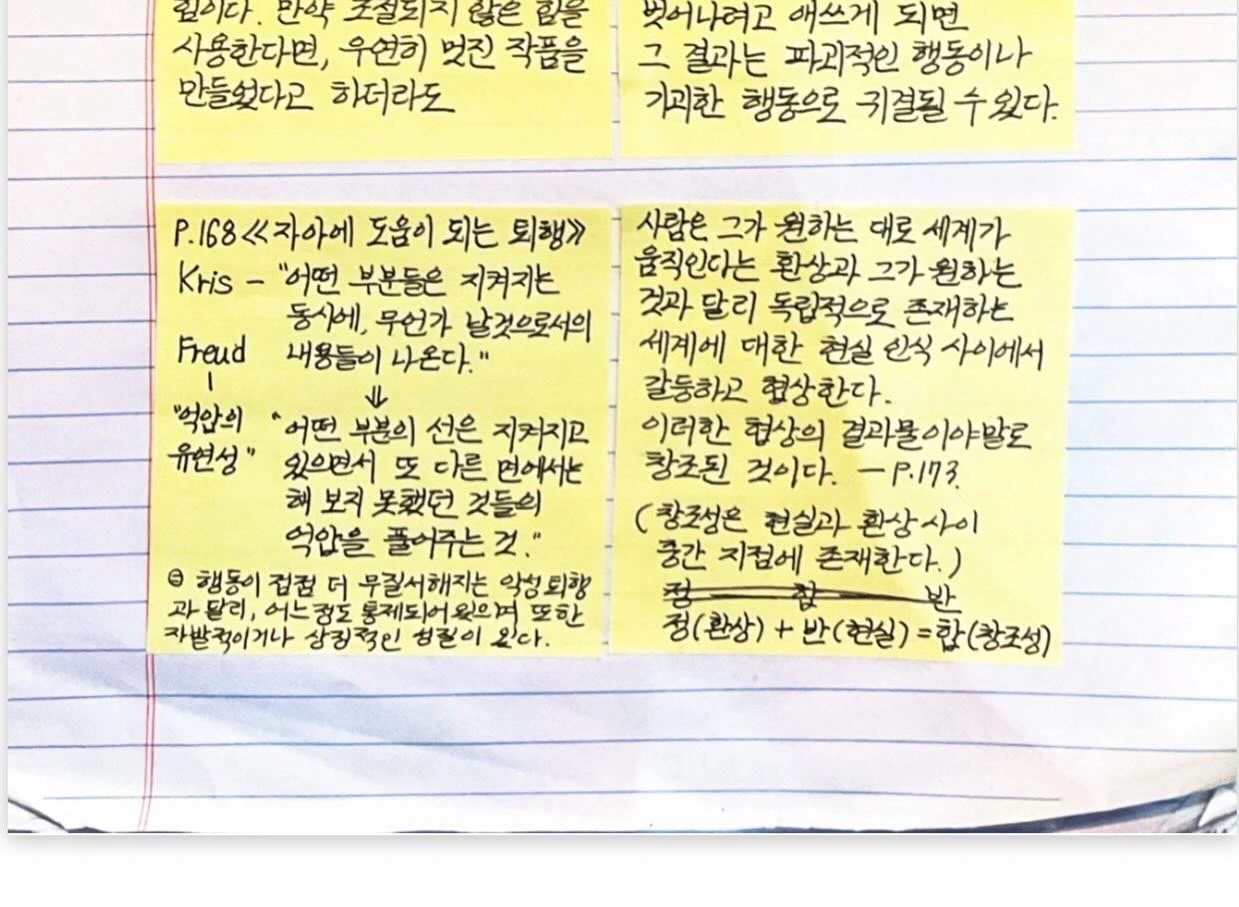 힘이다. 만약 조절되지 않은 힘을
사용한다면, 우연히 멋진 작품을
만들었다고 하더라도
벗어나려고 애쓰게 되면
그 결과는 파괴적인 행동이나
기괴한 행동으로 귀결될 수 있다.
P.168 《자아에 도움이 되는 퇴행》
Kris - "어떤 부분들은 지켜지는
동시에, 무언가 날것으로서의
내용들이 나온다."
⇓
Freud
"억압의
유연성"
"어떤 부분의 선은 지켜지고
있으면서 또 다른 면에서는
해 보지 못했던 것들의
억압을 풀어주는 것."
⊖ 행동이 점점 더 무질서해지는 악성퇴행
과 달리, 어느정도 통제되어 있으며 또한
자발적이거나 상징적인 성질이 있다.
사람은 그가 원하는 대로 세계가
움직인다는 환상과 그가 원하는
것과 달리 독립적으로 존재하는
세계에 대한 현실 인식 사이에서
갈등하고 협상한다.
이러한 협상의 결과물이야말로
창조된 것이다. - P.173.
(창조성은 현실과 환상 사이
중간 지점에 존재한다.)
정 합 반
정(환상) + 반(현실) = 합(창조성)